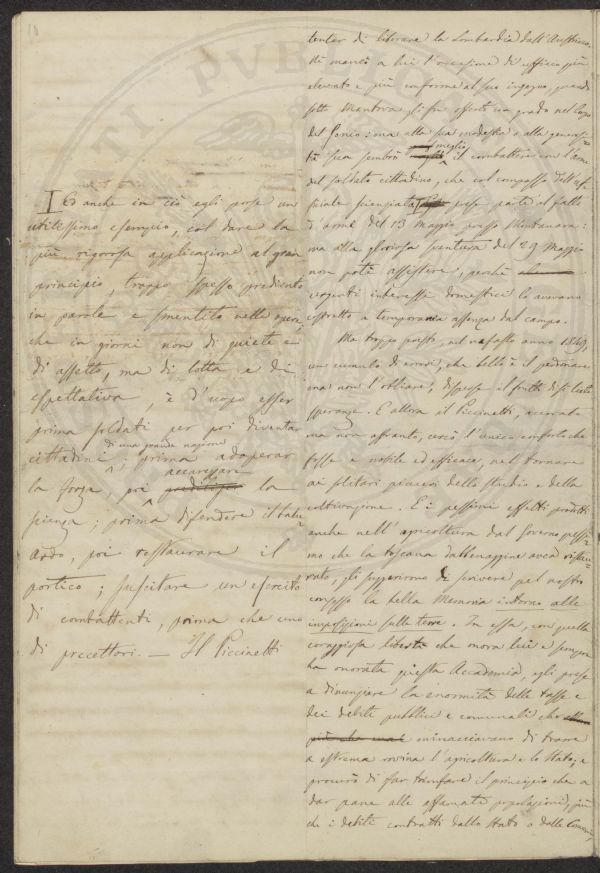 10
I Ed anche in ciò egli pose un
utilissimo esempio, col dare la
più rigorosa applicazione al gran
principio, troppo spesso predicato
in parole e smentito nelle opere,
che in giorni non di quiete e
di assetto, ma di lotta e di
espettativa, è d'uopo esser
prima soldati per poi diventar
di una grande nazione
cittadini; prima adoperar
accarezzare
la forza, poi prediliger la
scienza; prima difendere il balu-
ardo, poi restaurare il
portico; suscitare un esercito
di combattenti, prima che uno
di precettori. — Il Piccinetti
tentar di liberare la Lombardia dall'Austriaco.
Nè mancò a lui l'occasione di ufficio più
elevato e più conforme al suo ingegno, quando
sotto Mantova gli fu offerto un grado nel Corpo
del Genio: ma alla sua modestia o alla generosi-
meglio
tà sua sembrò il combattere con l'arme
del soldato cittadino, che col compasso dell'uf-
ficiale scienziato I prese parte al fatto
d'arme del 13 Maggio presso Montanara:
ma alla gloriosa sventura del 29 Maggio
non potè assistere, perchè
urgenti interessi domestici lo avevano
costretto a temporaria assenza dal campo.
Ma troppo presto, nel nefasto anno 1849,
un cumulo di errori, che bello è il perdonare
ma non l'obliare, disperse il frutto di sì liete
speranze. E allora il Piccinetti, accorato
ma non affranto, cercò l'unico conforto che
fosse e nobile ed efficace, nel tornare
ai solitari piaceri dello studio e della
coltivazione. E i pessimi effetti prodotti
anche nell'agricoltura dal Governo pessi-
mo che la Toscana dabbenaggine avea restau-
rato, gli suggerirono di scrivere pel nostro
consesso la bella Memoria intorno alle
imposizioni sulle terre. In essa, con quella
coraggiosa libertà che mora lui e sempre
ha onorata questa Accademia, egli prese
a dinunziare la enormità delle tasse e
dei debiti pubblici e comunali che
più che mai minacciavano di trarre
a estrema rovina l'agricoltura e lo Stato, e
procurò di far trionfare il principio che a
dar pane alle affamate popolazioni, più
che i debiti contratti dallo Stato o dalle Comuni,